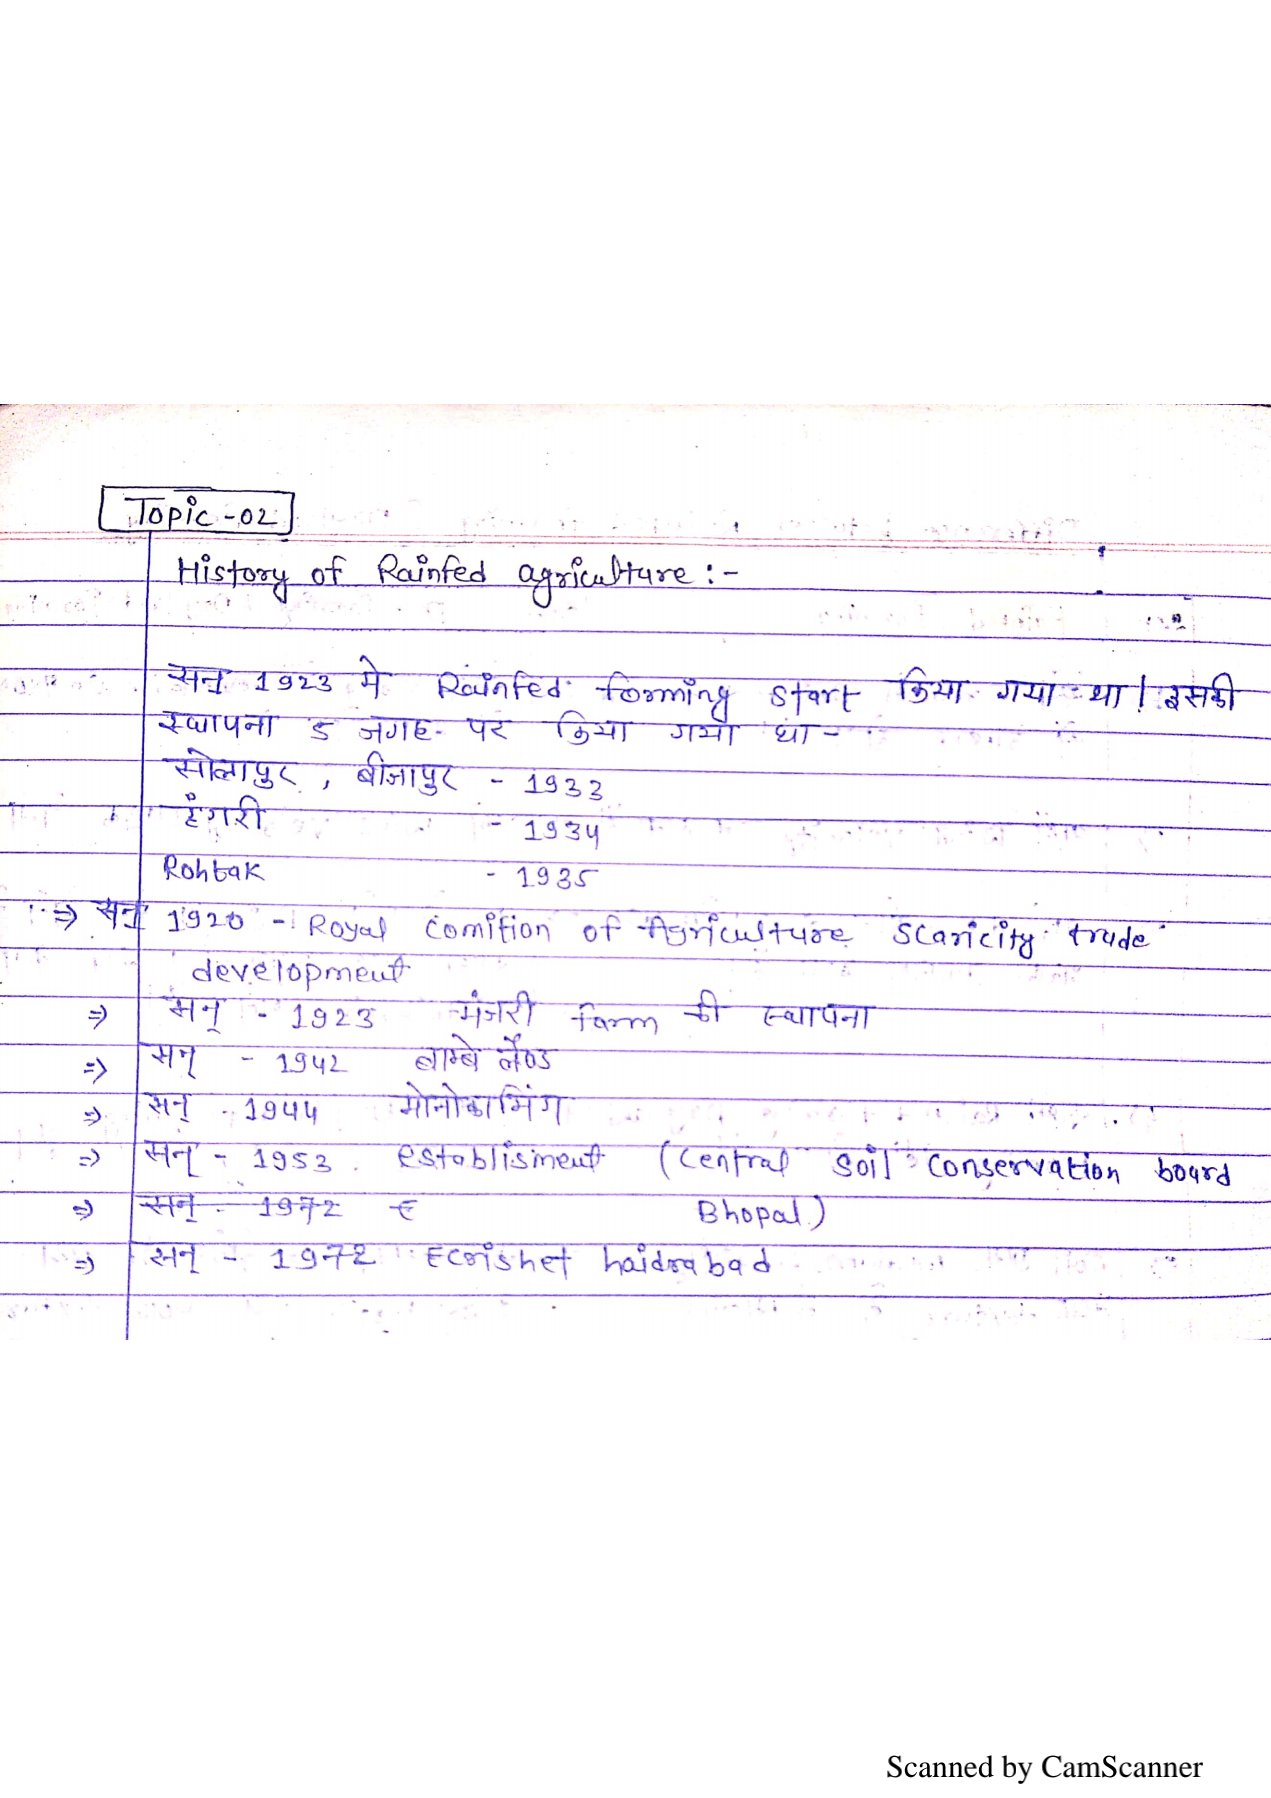 Topic-02
History of Rainfed agriculture :-
सन् 1923 मे Rainfed forming start किया गया था। इसकी
स्थापना 5 जगह पर किया गया था -
सोलापुर , बीजापुर - 1933
हंगरी - 1934
Rohtak - 1935
⇒ सन् 1920 - Royal Comition of Agriculture Scaricity trade
development
⇒ सन् - 1923 मंजरी farm की स्थापना
⇒ सन् - 1942 बाम्बे लैण्ड
⇒ सन् - 1944 मोनोक्रामिंग
⇒ सन् - 1953 establisment (Central Soil Conservation board
⇒ सन् - 1972 E Bhopal)
⇒ सन् - 1972 Ecrishet haidrabad
Scanned by CamScanner